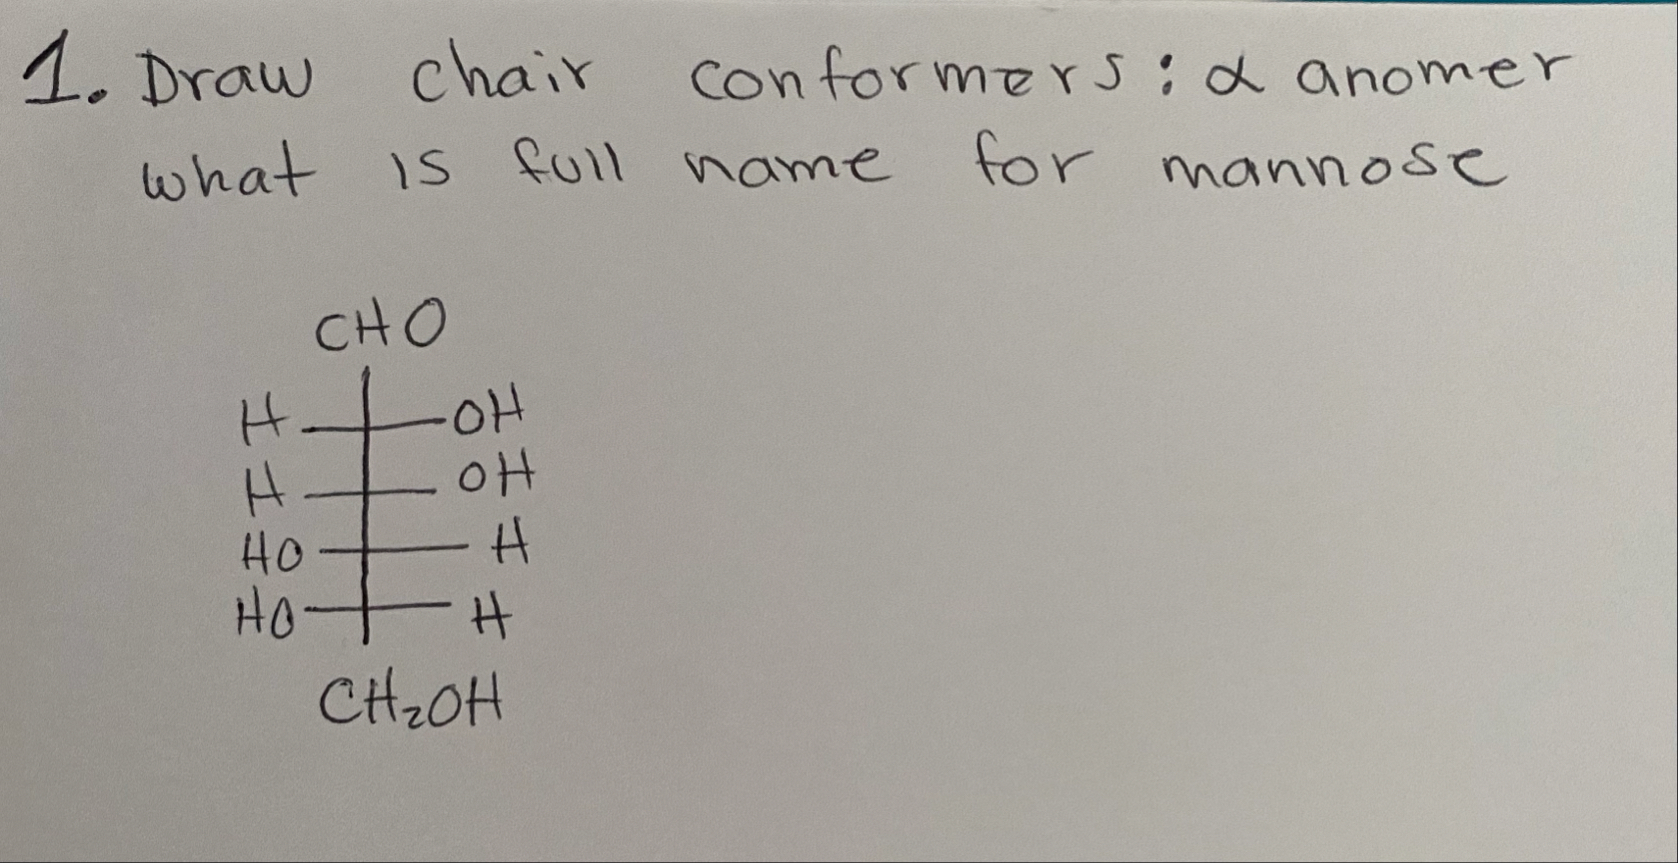 1. Draw chair conformers : α anomer
what is full name for mannose
CHO
H OH
H OH
HO H
HO H
CH₂OH